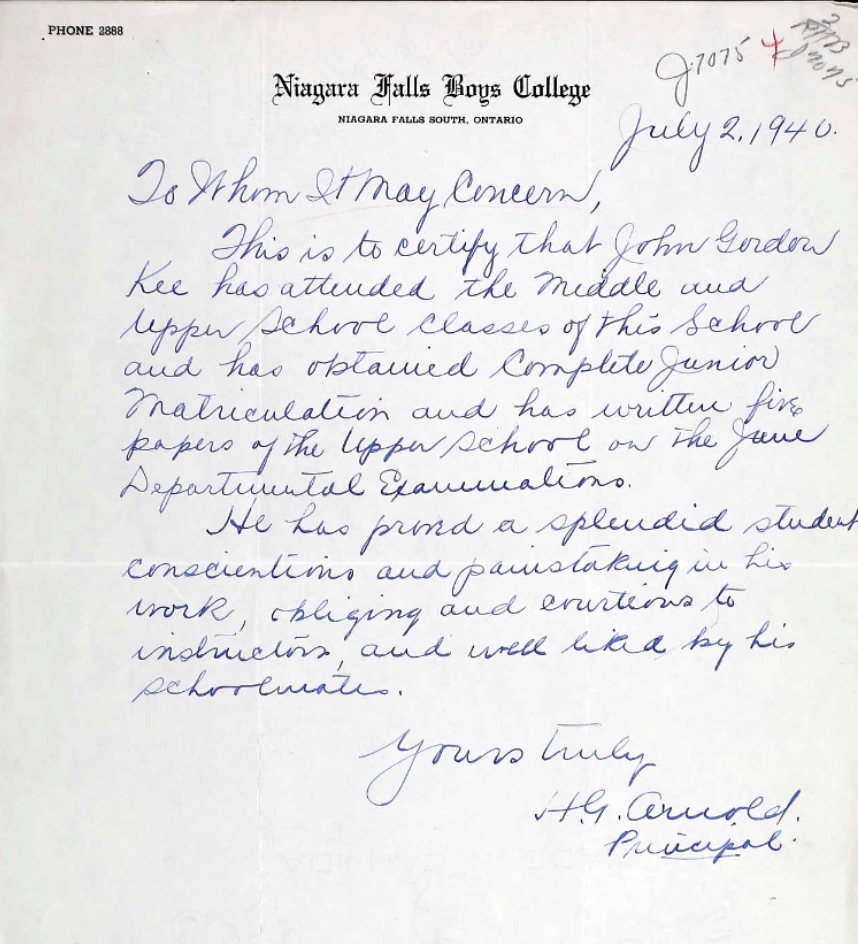 PHONE 2888
J7075
Niagara Falls Boys College
NIAGARA FALLS SOUTH, ONTARIO
July 2, 1940.
To Whom It May Concern,
This is to certify that John Gordon
Kee has attended the Middle and
Upper School Classes of this School
and has obtained Complete Junior
Matriculation and has written five
papers of the Upper School on the June
Departmental Examinations.
He has proved a splendid student
conscientious and painstaking in his
work, obliging and courteous to
instructors, and well liked by his
schoolmates.
Yours truly
H.G. Arnold.
Principal.